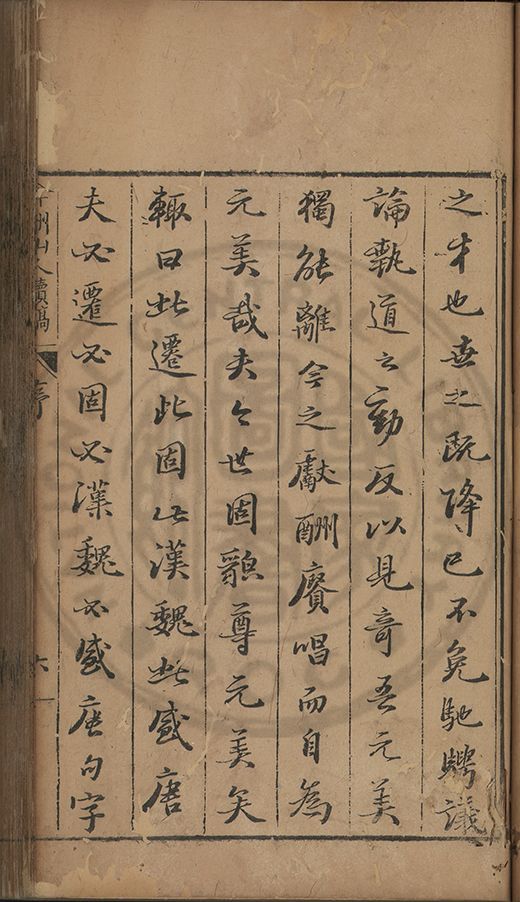 之才也世之既降已不免馳騁議
論執道之勤反以見奇吾元美
獨能離今之獻酬賡唱而自為
元美哉夫今世固貌尊元美矣
輒曰此遷此固此漢魏此盛唐
夫必遷必固必漢魏必盛唐句字
弇州山人續稿
序
六